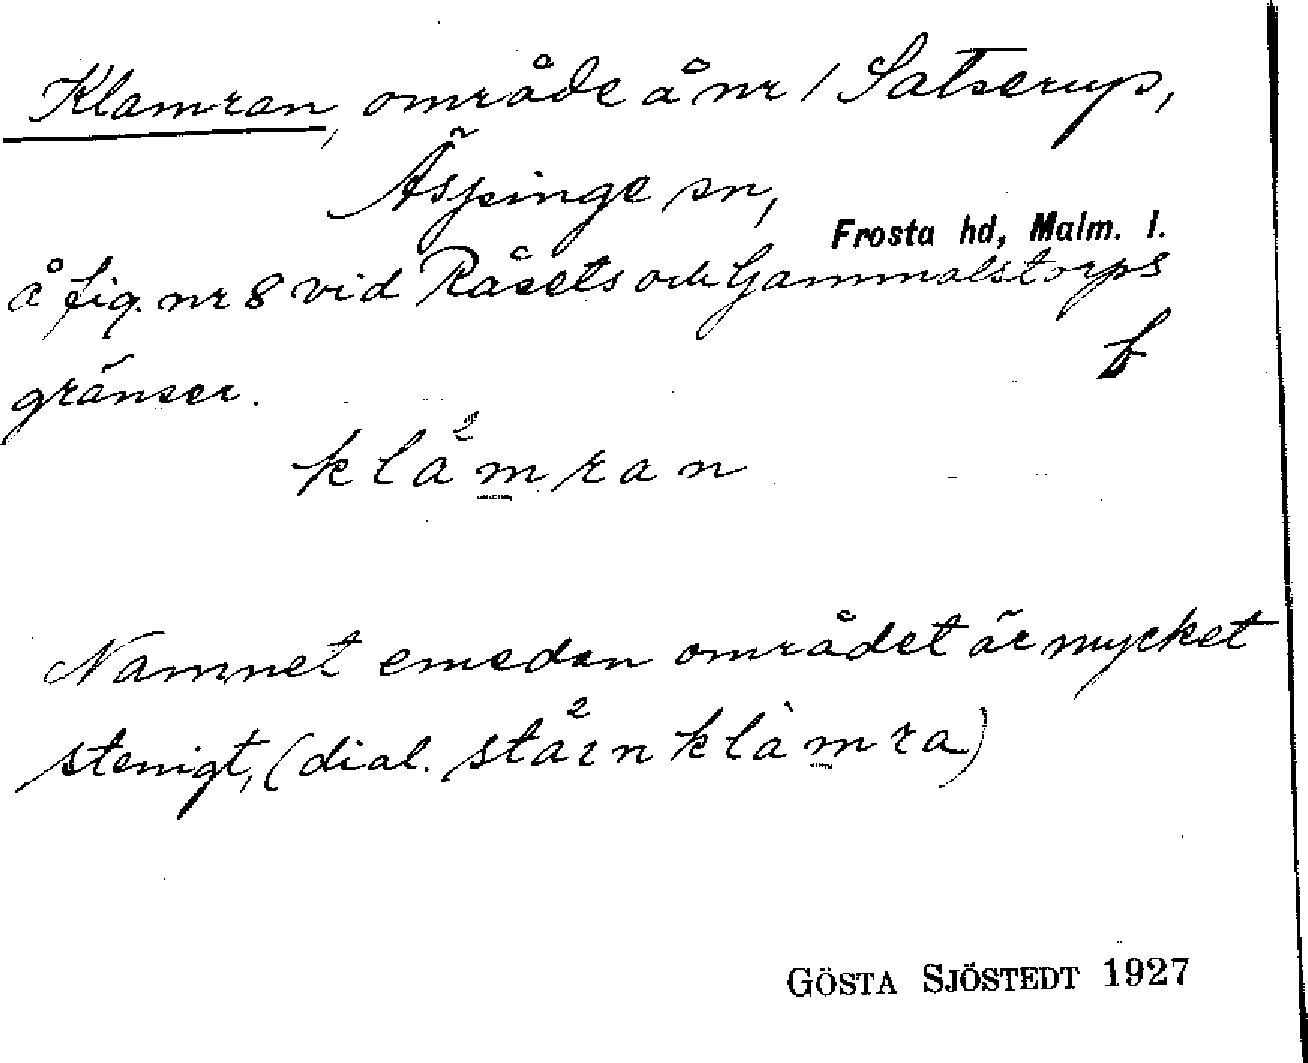 Klamran, område å nr 1 Satserup,
Äspinge sn,
Frosta hd, Malm. l.
å fig. nr 8 vid Råsets och Gammalstorps
gränser. b
klåmran
Namnet emedan området är mycket
stenigt, (dial. ståinklàmra)
GÖSTA SJÖSTEDT 1927